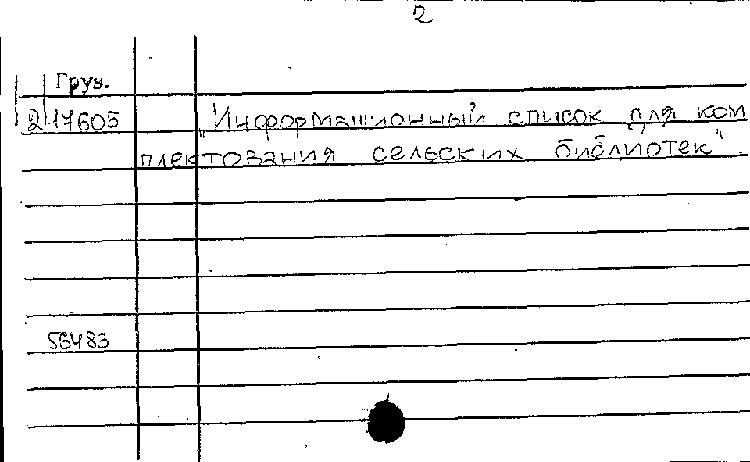 2
Груз.
2 17605 „Информационный список для ком
плектования сельских библиотек"
56483